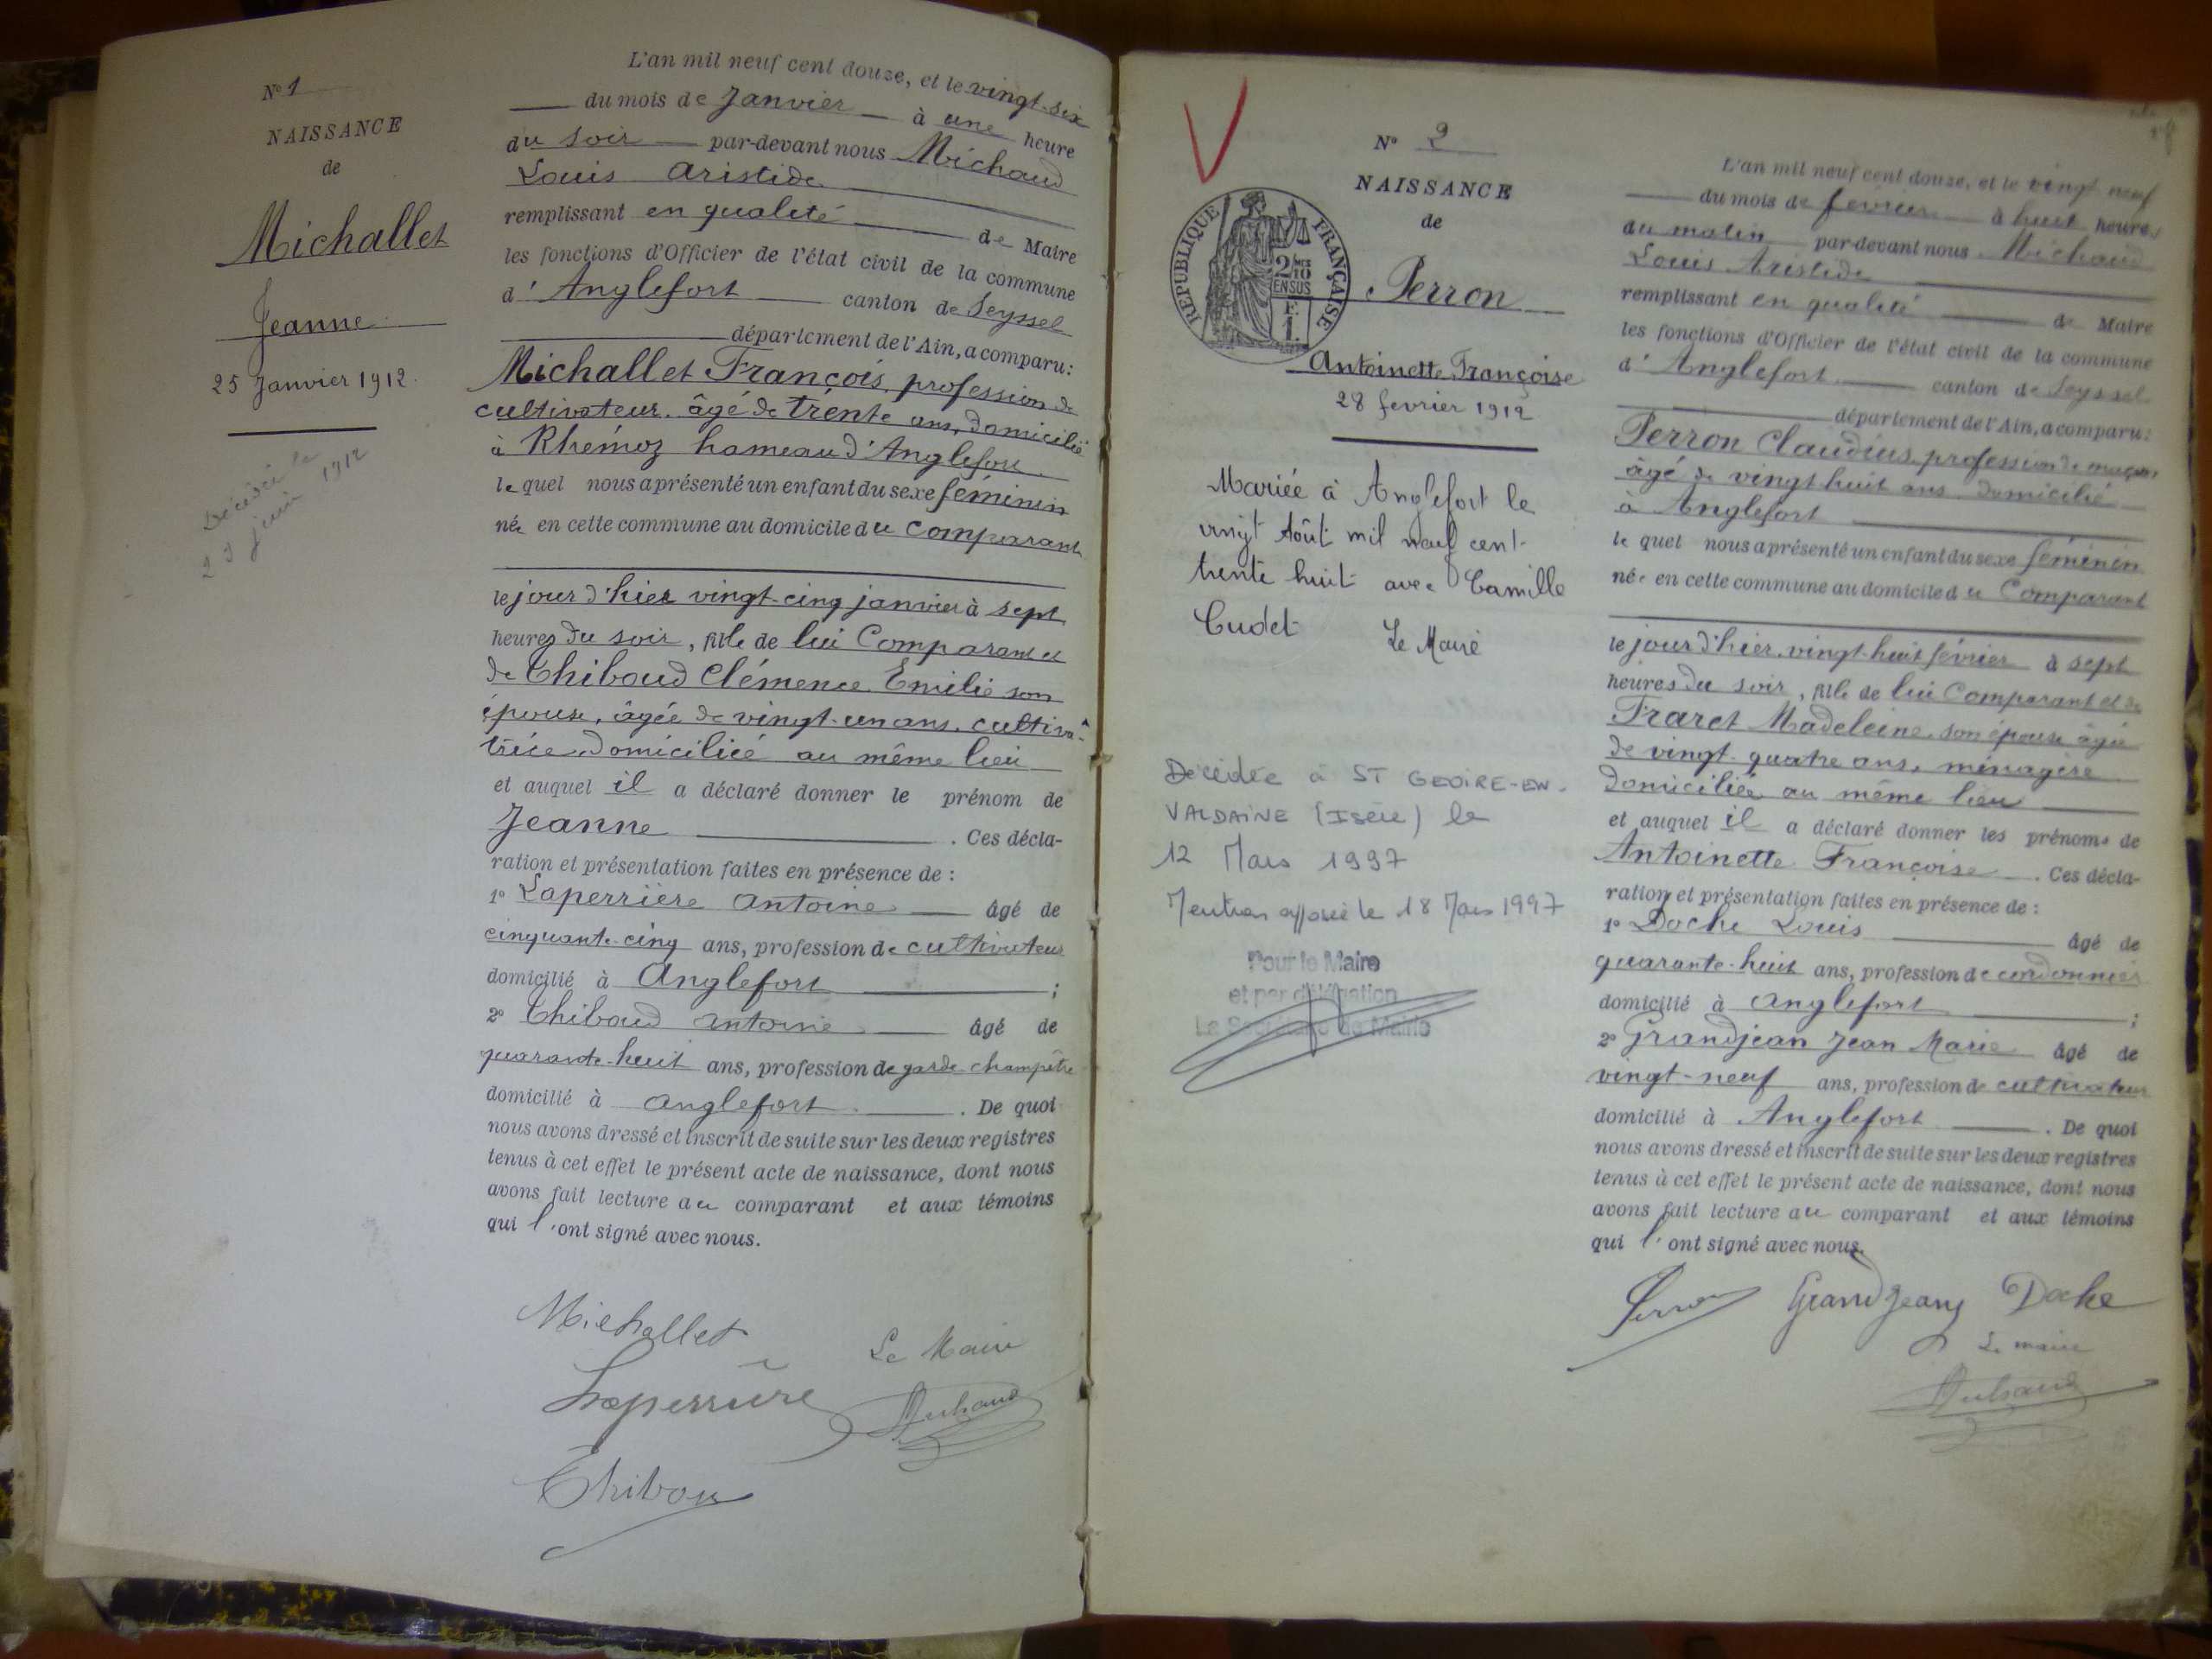 N° 1
NAISSANCE
de
Michallet
Jeanne
25 Janvier 1912.
Décédée le
29 juin 1912
L'an mil neuf cent douze, et le vingt-six
du mois de Janvier à une heure
du soir par-devant nous Michaud
Louis Aristide
remplissant en qualité de Maire
les fonctions d'Officier de l'état civil de la commune
d'Anglefort canton de Seyssel
département de l'Ain, a comparu:
Michallet François, profession de
cultivateur. âgé de trente ans, domicilié
à Rhémoz hameau d'Anglefort
lequel nous a présenté un enfant du sexe féminin
née en cette commune au domicile du comparant
le jour d'hier vingt-cinq janvier à sept
heures du soir, fille de lui Comparant et
de Thiboud Clémence Emilie son
épouse, âgée de vingt-un ans. cultiva-
trice domiciliée au même lieu
et auquel il a déclaré donner le prénom de
Jeanne . Ces décla-
ration et présentation faites en présence de :
1° Laperrière Antoine âgé de
cinquante-cinq ans, profession de cultivateur
domicilié à Anglefort ;
2° Thiboud Antoine âgé de
quarante-huit ans, profession de garde champêtre
domicilié à Anglefort . De quoi
nous avons dressé et inscrit de suite sur les deux registres
tenus à cet effet le présent acte de naissance, dont nous
avons fait lecture au comparant et aux témoins
qui l'ont signé avec nous.
Michallet
Le Maire
Laperrière
Michaud
Thiboud
N° 2
NAISSANCE
de
RÉPUBLIQUE FRANÇAISE
2/10
EN SUS
1 F.
Perron
Antoinette Françoise
28 fevrier 1912
Mariée à Anglefort le
vingt Août mil neuf cent
trente huit avec Camille
Cudet
Le Maire
Décédée à ST GEOIRE-EN-
VALDAINE (Isère) le
12 Mars 1997
Mention apposée le 18 Mars 1997
Pour le Maire
et par délégation
Le Secrétaire de Mairie
L'an mil neuf cent douze, et le vingt neuf
du mois de février à huit heures
du matin par-devant nous Michaud
Louis Aristide
remplissant en qualité de Maire
les fonctions d'Officier de l'état civil de la commune
d'Anglefort canton de Seyssel
département de l'Ain, a comparu:
Perron Claudius, profession de maçon,
âgé de vingt huit ans domicilié
à Anglefort
lequel nous a présenté un enfant du sexe féminin
née en cette commune au domicile du Comparant
le jour d'hier, vingt-huit février à sept
heures du soir, fille de lui Comparant et de
Fraret Madeleine, son épouse âgée
de vingt-quatre ans, ménagère
domiciliée au même lieu
et auquel il a déclaré donner les prénoms de
Antoinette Françoise . Ces décla-
ration et présentation faites en présence de :
1° Doche Louis âgé de
quarante-huit ans, profession de cordonnier
domicilié à Anglefort ;
2° Grandjean Jean Marie âgé de
vingt-neuf ans, profession de cultivateur
domicilié à Anglefort . De quoi
nous avons dressé et inscrit de suite sur les deux registres
tenus à cet effet le présent acte de naissance, dont nous
avons fait lecture au comparant et aux témoins
qui l'ont signé avec nous.
Perron Grandjean Doche
Le maire
Michaud